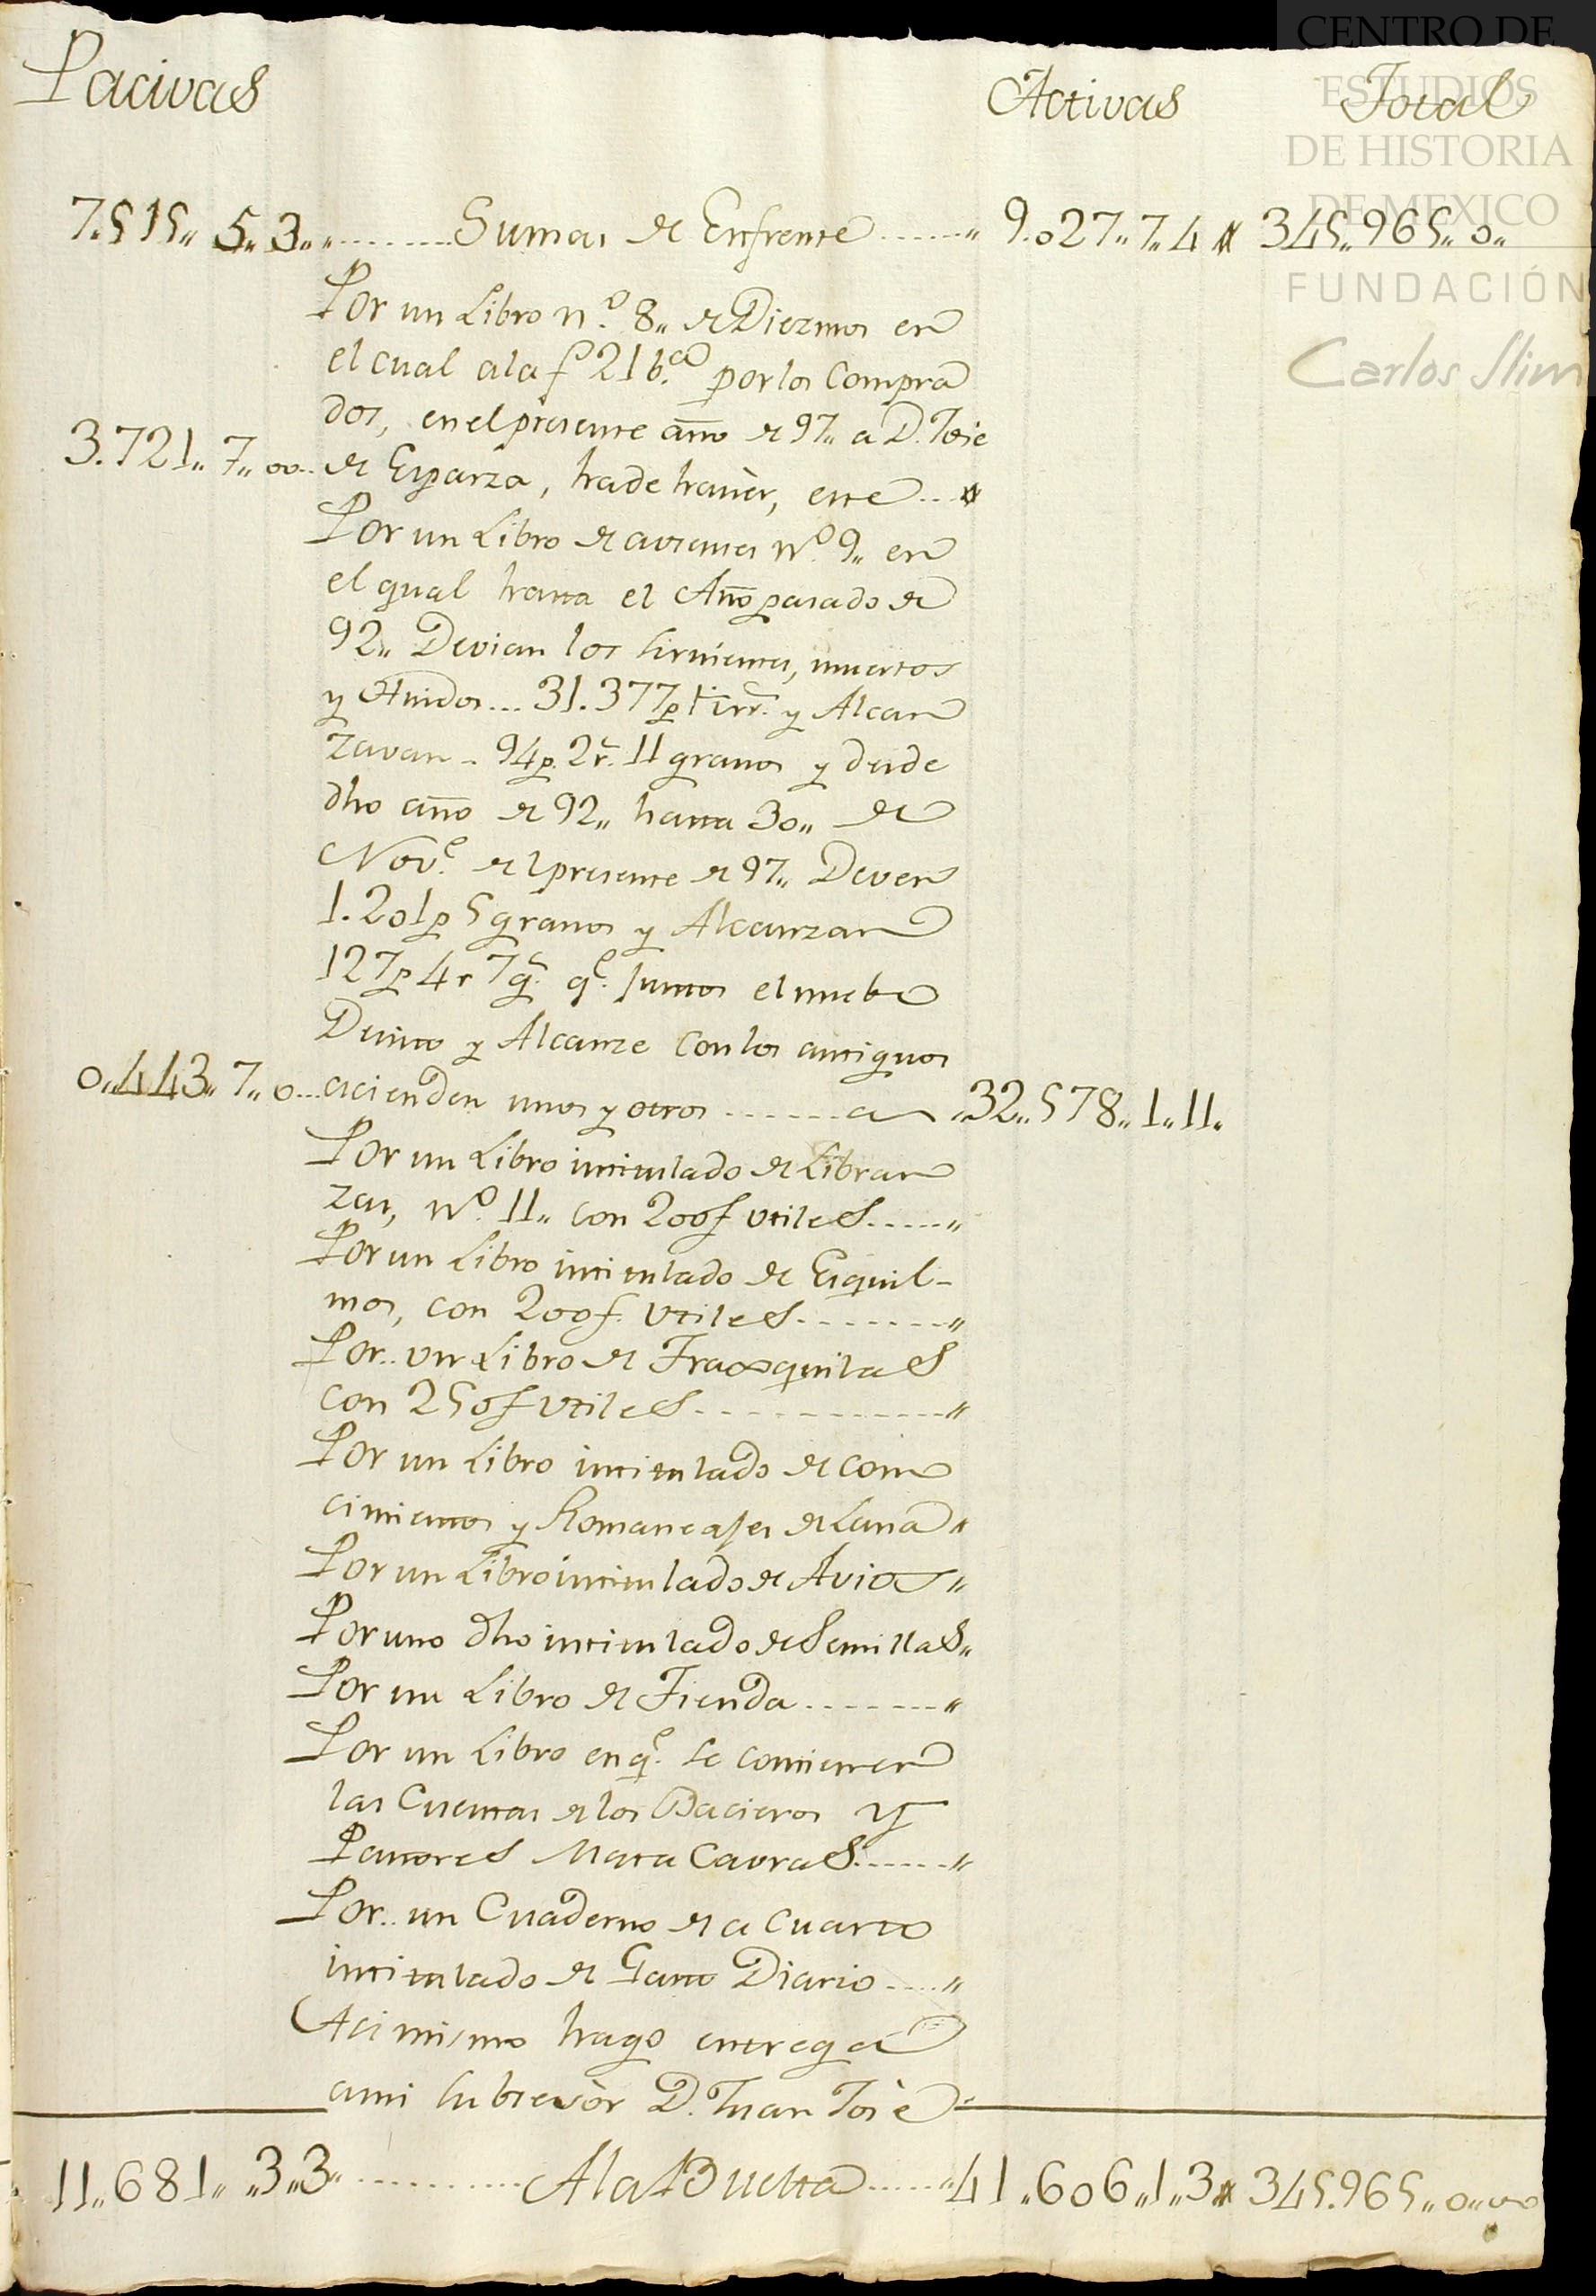 CENTRO DE
ESTUDIOS
DE HISTORIA
DE MEXICO
FUNDACIÓN
Carlos Slim
Pacivas Activas Total
7.515,, 5,, 3,, ,,.........Sumas de Enfrente ......,, 9.027,, 7,, 4 345,, 965,, 0,,
Por un Libro n.º 8,, de Diezmos en
el cual ala f 21 b.ta por los Compra
dos, en el presente año de 97,, a D. Jose
3.721,, 7,, 00... de Esparza, ha de havèr, este ...
Por un Libro de avientes Nº. 9,, en
el qual hasta el Año pasado de
92,, Devian los sirvientes, muertos
y Huidos... 31.377p 1 rr. y Alcan
zavan - 94p. 2r. 11 granos y desde
dho año de 92,, hasta 30,, de
Nov.e del presente de 97,, Deven
1.201p 5 granos y Alcanzan
127p 4r 7g.s q.e Juntos el nuebo
Devito y Alcanze con los antiguos
0,,443,, 7,, 0...acienden unos y otros ....... a ,,32,, 578,, 1,, 11,,
Por un Libro intitulado de Libran
zas, Nº. 11,, con 200f utiles......,,
Por un Libro intitulado de Esquil-
mos, con 200f. Utiles........,,
Por.. un Libro de Trasquilas
con 250f Utiles............,,
Por un Libro intitulado de cono
cimientos y Romaneajes de Lana,,
Por un Libro intitulado de Avios,,
Por uno dho intitulado de Semillas,,
Por un Libro de Tienda ........,,
Por un Libro en q.e se contienen
las Cuentas de los Bacieros y
Pastores Mata Cavras......,,
Por.. un Cuaderno de a Cuarto
intitulado de Gasto Diario ....,,
Acimismo hago entrega
a mi subcesòr D. Juan Josè
11,,681,, ,,3,,3,, ..........A la Buelta......,,41,,606,,1,,3 345.965,,0,,00